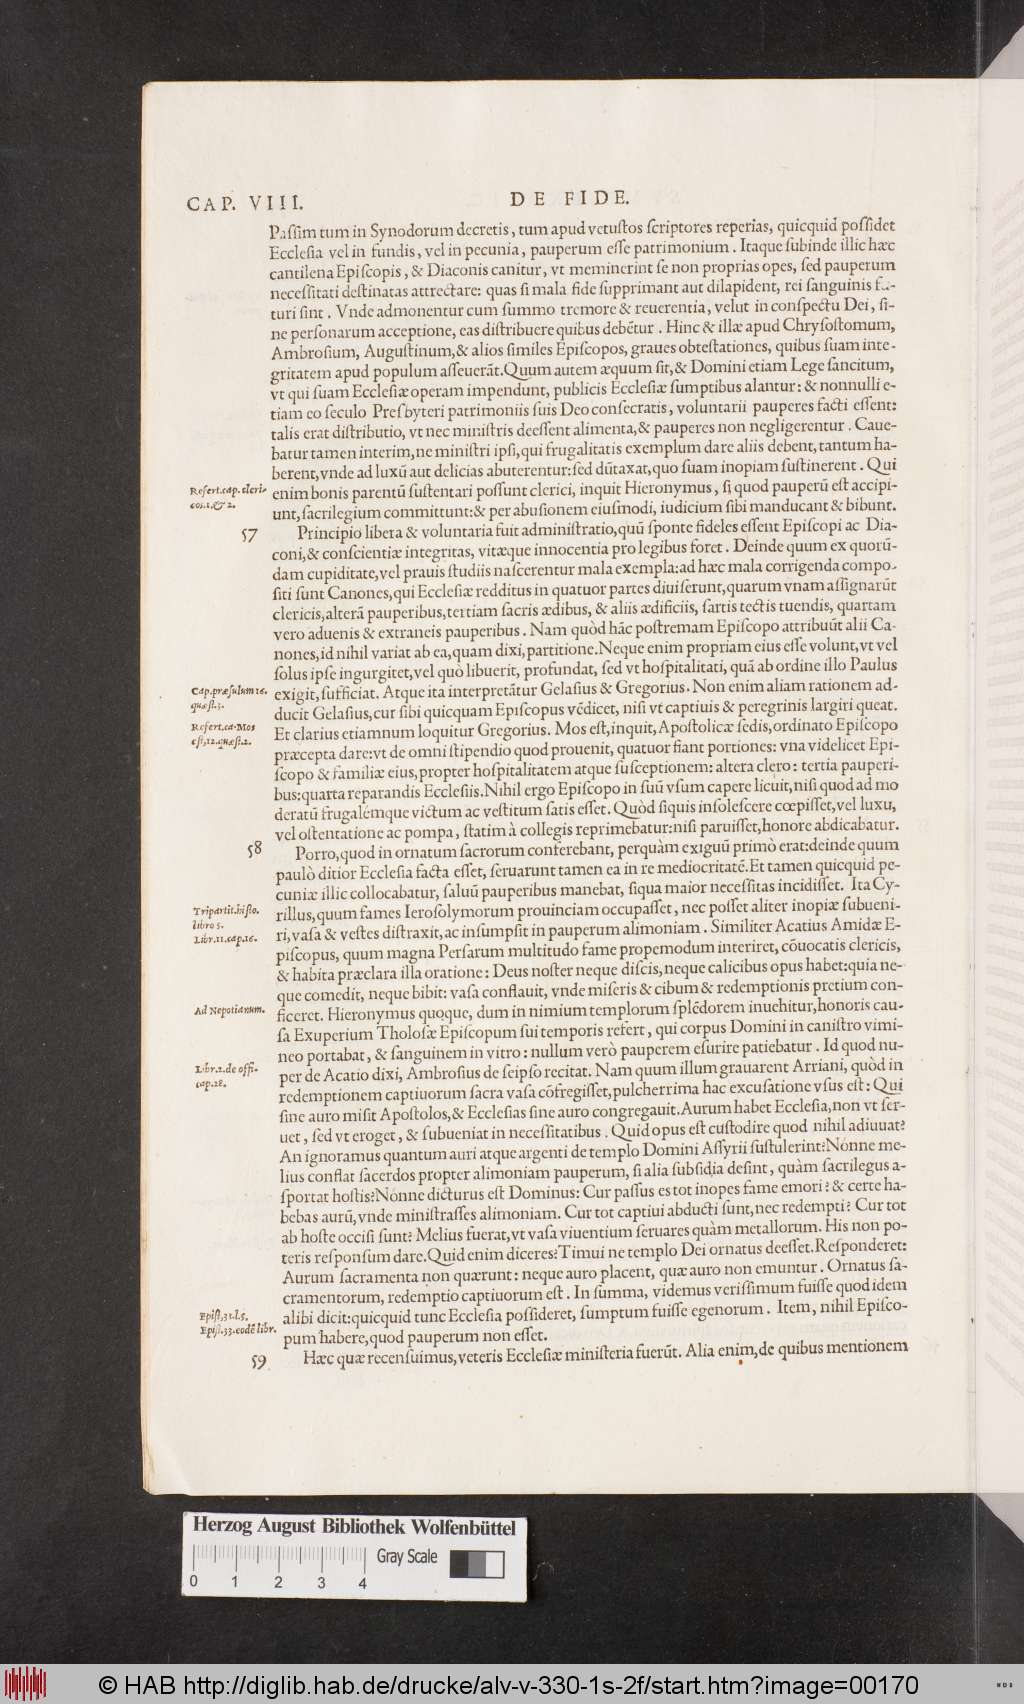 CAP. VIII.
DE FIDE.
Paſſim tum in Synodorum decretis, tum apud vetuſtos ſcriptores reperias, quicquid poſſidet
Eccleſia vel in fundis, vel in pecunia, pauperum eſſe patrimonium. Itaque ſubinde illic hæc
cantilena Epiſcopis, & Diaconis canitur, vt meminerint ſe non proprias opes, ſed pauperum
neceſſitati deſtinatas attrectare: quas ſi mala fide ſupprimant aut dilapident, rei ſanguinis fu-
turi ſint. Vnde admonentur cum ſummo tremore & reuerentia, velut in conſpectu Dei, ſi-
ne perſonarum acceptione, eas diſtribuere quibus debētur. Hinc & illæ apud Chryſoſtomum,
Ambroſium, Auguſtinum, & alios ſimiles Epiſcopos, graues obteſtationes, quibus ſuam inte-
gritatem apud populum aſſeuerāt. Quum autem æquum ſit, & Domini etiam Lege ſancitum,
vt qui ſuam Eccleſiæ operam impendunt, publicis Eccleſiæ ſumptibus alantur: & nonnulli e-
tiam eo ſeculo Preſbyteri patrimoniis ſuis Deo conſecratis, voluntarii pauperes facti eſſent:
talis erat diſtributio, vt nec miniſtris deeſſent alimenta, & pauperes non negligerentur. Caue-
batur tamen interim, ne miniſtri ipſi, qui frugalitatis exemplum dare aliis debent, tantum ha-
berent, vnde ad luxū aut delicias abuterentur: ſed dūtaxat, quo ſuam inopiam ſuſtinerent. Qui
Refert.cap.cleri-
cos.1.& 2.
enim bonis parentū ſuſtentari poſſunt clerici, inquit Hieronymus, ſi quod pauperū eſt accipi-
unt, ſacrilegium committunt: & per abuſionem eiuſmodi, iudicium ſibi manducant & bibunt.
57
Principio libera & voluntaria fuit adminiſtratio, quū ſponte fideles eſſent Epiſcopi ac Dia-
coni, & conſcientiæ integritas, vitæque innocentia pro legibus foret. Deinde quum ex quorū-
dam cupiditate, vel prauis ſtudiis naſcerentur mala exempla: ad hæc mala corrigenda compo-
ſiti ſunt Canones, qui Eccleſiæ redditus in quatuor partes diuiſerunt, quarum vnam aſſignarūt
clericis, alterā pauperibus, tertiam ſacris ædibus, & aliis ædificiis, ſartis tectis tuendis, quartam
vero aduenis & extraneis pauperibus. Nam quòd hāc poſtremam Epiſcopo attribuūt alii Ca-
nones, id nihil variat ab ea, quam dixi, partitione. Neque enim propriam eius eſſe volunt, vt vel
ſolus ipſe ingurgitet, vel quò libuerit, profundat, ſed vt hoſpitalitati, quā ab ordine illo Paulus
Cap.præſulum 16.
quæſt.3.
exigit, ſufficiat. Atque ita interpretātur Gelaſius & Gregorius. Non enim aliam rationem ad-
ducit Gelaſius, cur ſibi quicquam Epiſcopus vēdicet, niſi vt captiuis & peregrinis largiri queat.
Refert.ca.Mos
eſt,12.quæſt.2.
Et clarius etiamnum loquitur Gregorius. Mos eſt, inquit, Apoſtolicæ ſedis, ordinato Epiſcopo
præcepta dare: vt de omni ſtipendio quod prouenit, quatuor fiant portiones: vna videlicet Epi-
ſcopo & familiæ eius, propter hoſpitalitatem atque ſuſceptionem: altera clero: tertia pauperi-
bus: quarta reparandis Eccleſiis. Nihil ergo Epiſcopo in ſuū vſum capere licuit, niſi quod ad mo
deratū frugalémque victum ac veſtitum ſatis eſſet. Quòd ſiquis inſoleſcere cœpiſſet, vel luxu,
vel oſtentatione ac pompa, ſtatim à collegis reprimebatur: niſi paruiſſet, honore abdicabatur.
58
Porro, quod in ornatum ſacrorum conferebant, perquàm exiguū primò erat: deinde quum
paulò ditior Eccleſia facta eſſet, ſeruarunt tamen ea in re mediocritatē. Et tamen quicquid pe-
cuniæ illic collocabatur, ſaluū pauperibus manebat, ſiqua maior neceſſitas incidiſſet. Ita Cy-
Tripartit.hiſto.
libro 5.
Libr.11.cap.16.
rillus, quum fames Ieroſolymorum prouinciam occupaſſet, nec poſſet aliter inopiæ ſubueni-
ri, vaſa & veſtes diſtraxit, ac inſumpſit in pauperum alimoniam. Similiter Acatius Amidæ E-
piſcopus, quum magna Perſarum multitudo fame propemodum interiret, cōuocatis clericis,
& habita præclara illa oratione: Deus noſter neque diſcis, neque calicibus opus habet: quia ne-
que comedit, neque bibit: vaſa conflauit, vnde miſeris & cibum & redemptionis pretium con-
Ad Nepotianum.
ficeret. Hieronymus quoque, dum in nimium templorum ſplēdorem inuehitur, honoris cau-
ſa Exuperium Tholoſæ Epiſcopum ſui temporis refert, qui corpus Domini in caniſtro vimi-
neo portabat, & ſanguinem in vitro: nullum verò pauperem eſurire patiebatur. Id quod nu-
Libr.2.de offi-
cap.28.
per de Acatio dixi, Ambroſius de ſeipſo recitat. Nam quum illum grauarent Arriani, quòd in
redemptionem captiuorum ſacra vaſa cōfregiſſet, pulcherrima hac excuſatione vſus eſt: Qui
ſine auro miſit Apoſtolos, & Eccleſias ſine auro congregauit. Aurum habet Eccleſia, non vt ſer-
uet, ſed vt eroget, & ſubueniat in neceſſitatibus. Quid opus eſt cuſtodire quod nihil adiuuat?
An ignoramus quantum auri atque argenti de templo Domini Aſſyrii ſuſtulerint? Nónne me-
lius conflat ſacerdos propter alimoniam pauperum, ſi alia ſubſidia deſint, quàm ſacrilegus a-
ſportat hoſtis? Nónne dicturus eſt Dominus: Cur paſſus es tot inopes fame emori? & certe ha-
bebas aurū, vnde miniſtraſſes alimoniam. Cur tot captiui abducti ſunt, nec redempti? Cur tot
ab hoſte occiſi ſunt? Melius fuerat, vt vaſa viuentium ſeruares quàm metallorum. His non po-
teris reſponſum dare. Quid enim diceres? Timui ne templo Dei ornatus deeſſet. Reſponderet:
Aurum ſacramenta non quærunt: neque auro placent, quæ auro non emuntur. Ornatus ſa-
cramentorum, redemptio captiuorum eſt. In ſumma, videmus veriſſimum fuiſſe quod idem
Epiſt.31.l.5.
Epiſt.33.eodē libr.
alibi dicit: quicquid tunc Eccleſia poſſideret, ſumptum fuiſſe egenorum. Item, nihil Epiſco-
pum habere, quod pauperum non eſſet.
59
Hæc quæ recenſuimus, veteris Eccleſiæ miniſteria fuerūt. Alia enim, de quibus mentionem
Herzog August Bibliothek Wolfenbüttel
Gray Scale
0 1 2 3 4
© HAB http://diglib.hab.de/drucke/alv-v-330-1s-2f/start.htm?image=00170